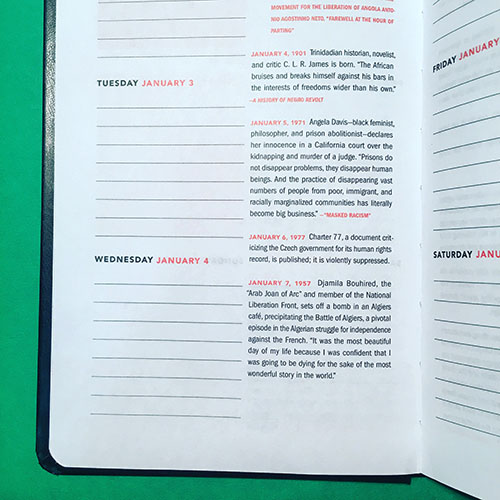 TUESDAY JANUARY 3
WEDNESDAY JANUARY 4
MOVEMENT FOR THE LIBERATION OF ANGOLA ANTO-
NIO AGOSTINHO NETO, "FAREWELL AT THE HOUR OF
PARTING"
JANUARY 4, 1901 Trinidadian historian, novelist,
and critic C. L. R. James is born. "The African
bruises and breaks himself against his bars in
the interests of freedoms wider than his own."
—A HISTORY OF NEGRO REVOLT
JANUARY 5, 1971 Angela Davis—black feminist,
philosopher, and prison abolitionist—declares
her innocence in a California court over the
kidnapping and murder of a judge. "Prisons do
not disappear problems, they disappear human
beings. And the practice of disappearing vast
numbers of people from poor, immigrant, and
racially marginalized communities has literally
become big business." —"MASKED RACISM"
JANUARY 6, 1977 Charter 77, a document crit-
icizing the Czech government for its human rights
record, is published; it is violently suppressed.
JANUARY 7, 1957 Djamila Bouhired, the
"Arab Joan of Arc" and member of the National
Liberation Front, sets off a bomb in an Algiers
café, precipitating the Battle of Algiers, a pivotal
episode in the Algerian struggle for independence
against the French. "It was the most beautiful
day of my life because I was confident that I
was going to be dying for the sake of the most
wonderful story in the world."
FRIDAY JANUARY
SATURDAY JANU